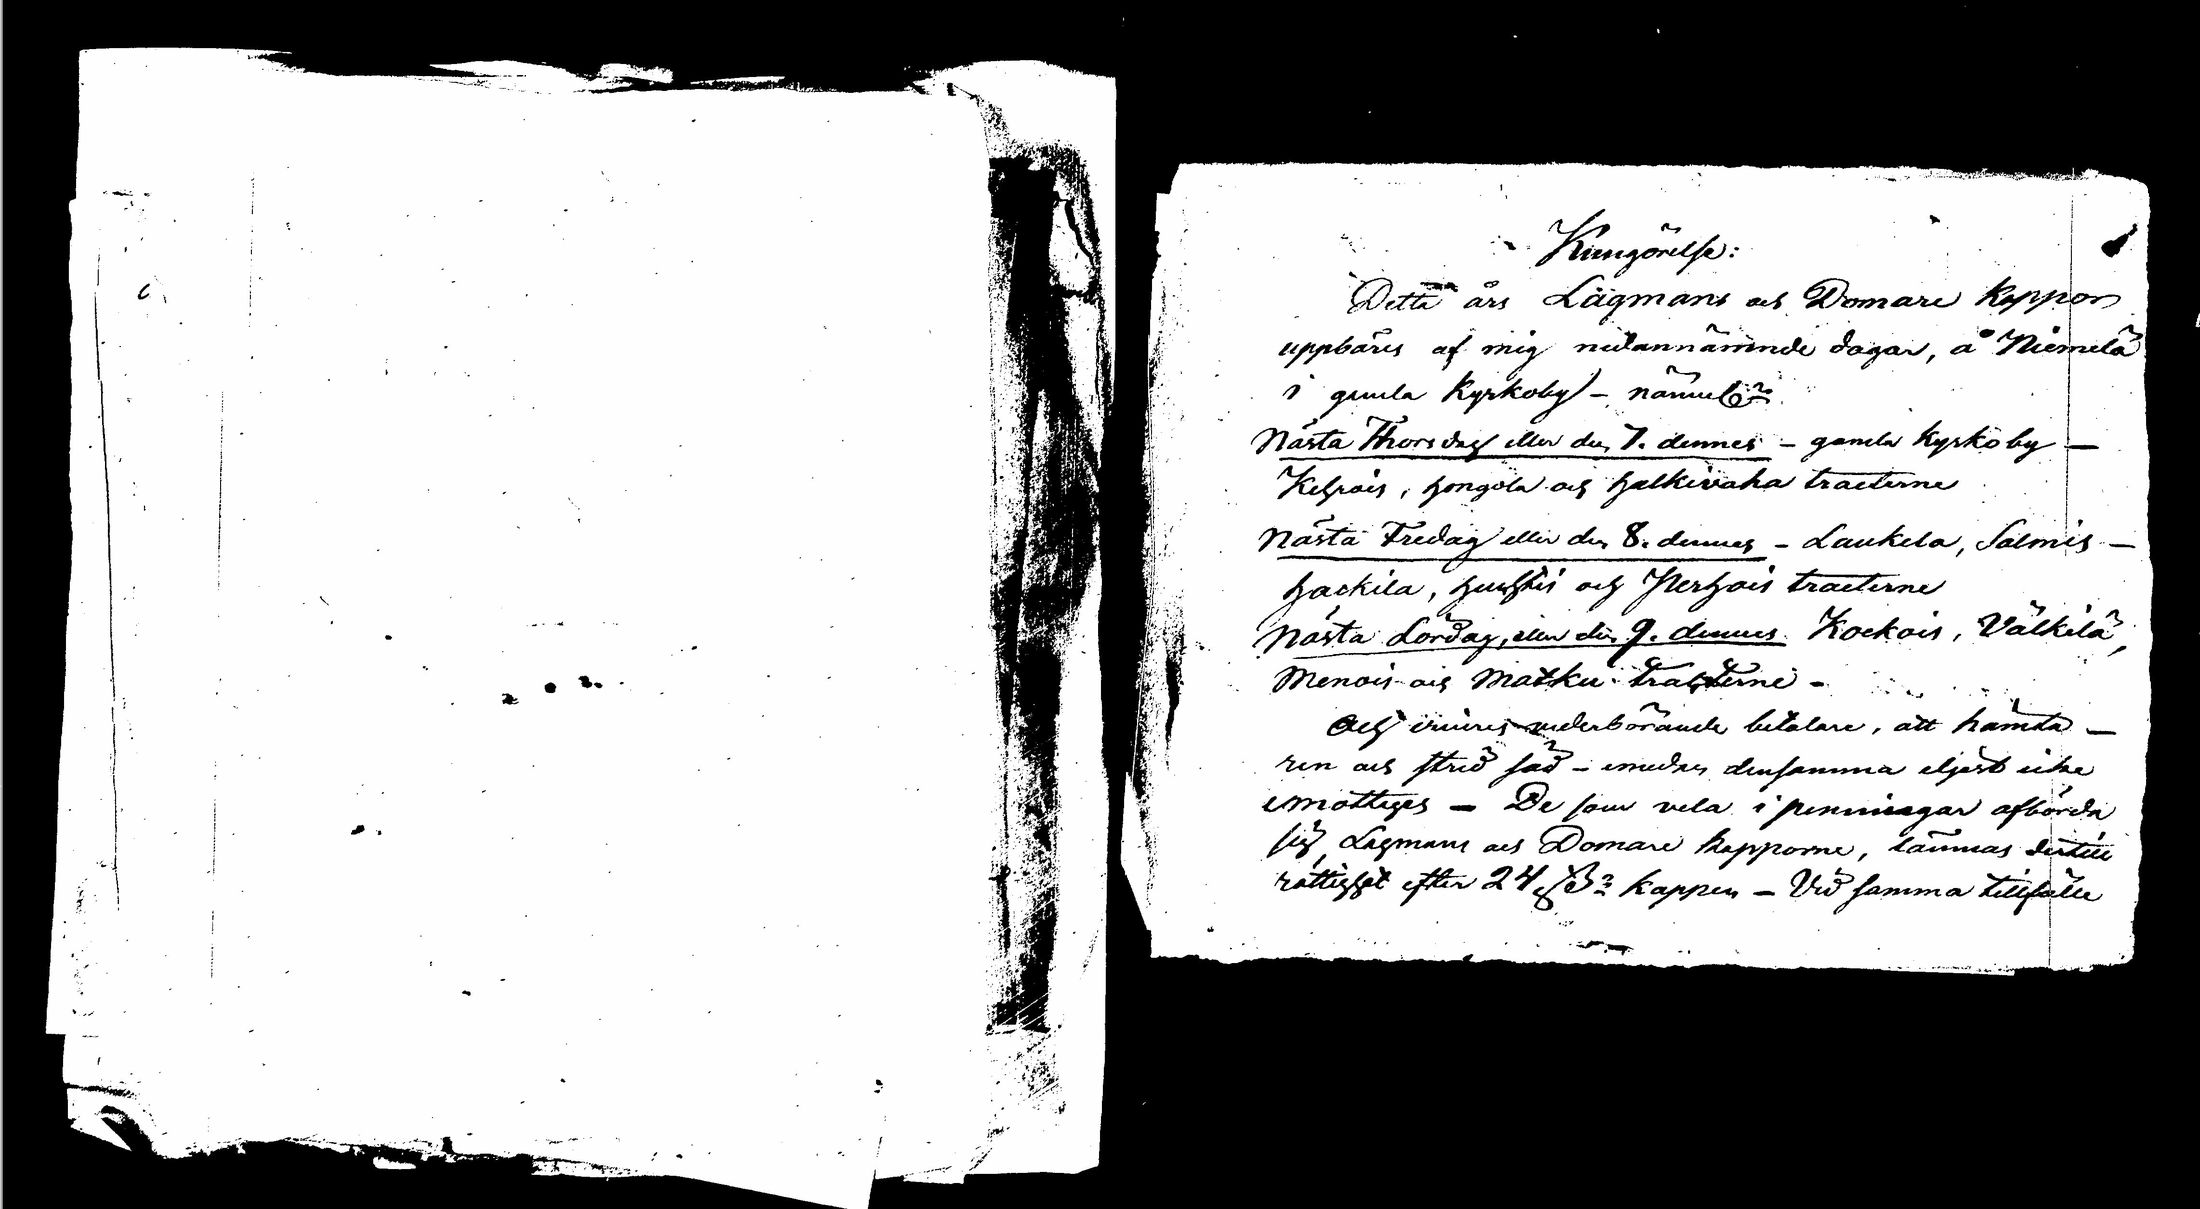 Kungörelse:
Detta års Lagmans och Domare kappor
uppbäres af mig nedannämnde dagar, å Niemelä
i gamla Kyrkoby –
Nästa Thorsdag eller den 7. dennes – gamla kyrkoby –
hongola och halkivaha tracterne
Nästa Fredag eller den 8. dennes – Laukela, Salmis –
hackila, och Perhois tracterne
Nästa Lördag, eller den 9. dennes Kockois, Välkilä,
Menois och Matku tracterne –
Och vederbörande betalare, att hämta –
ren och strid säd – emedan densamma eljest icke
emottages – De som vela i penningar afbörda
sig Lagmans och Domare kapporne, lämnas dertill
rättighet efter 24 kappen – Vid samma tillfälle